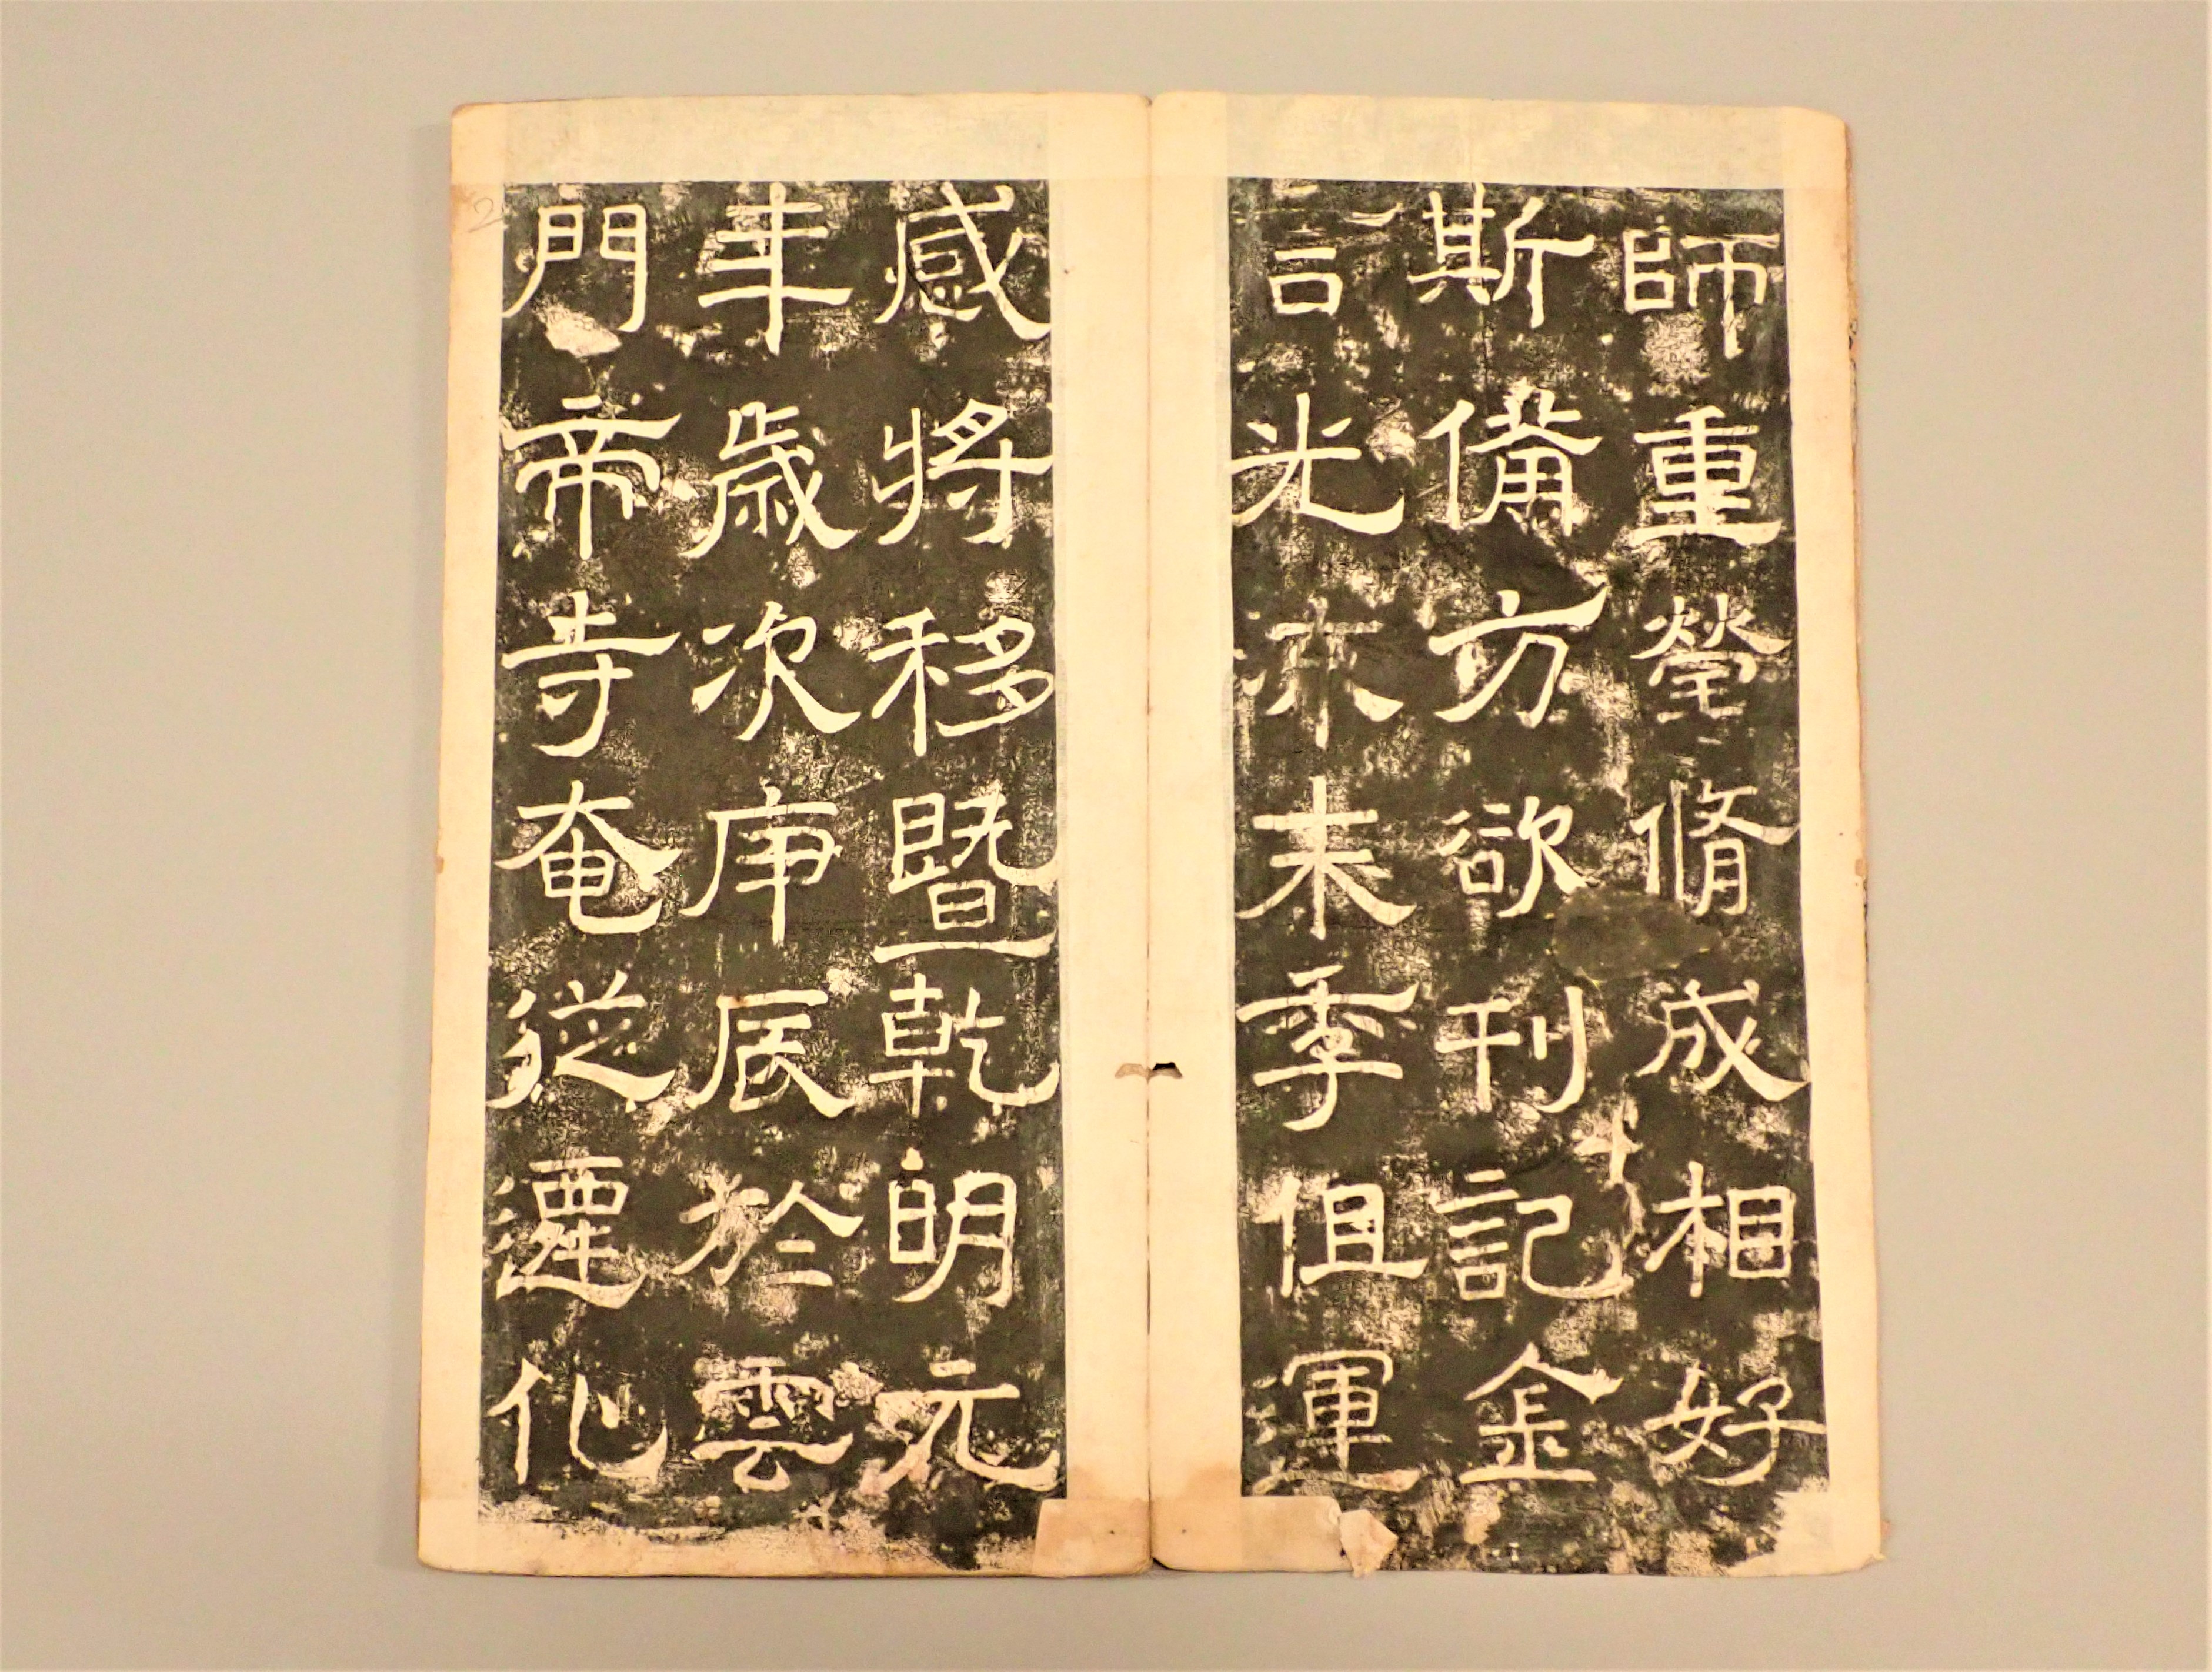 師重瑩脩成相好
斯備方欲刊記金
言光未季但運
感将移暨乾明元
年歲次庚辰於雲
門帝寺奄從遷化